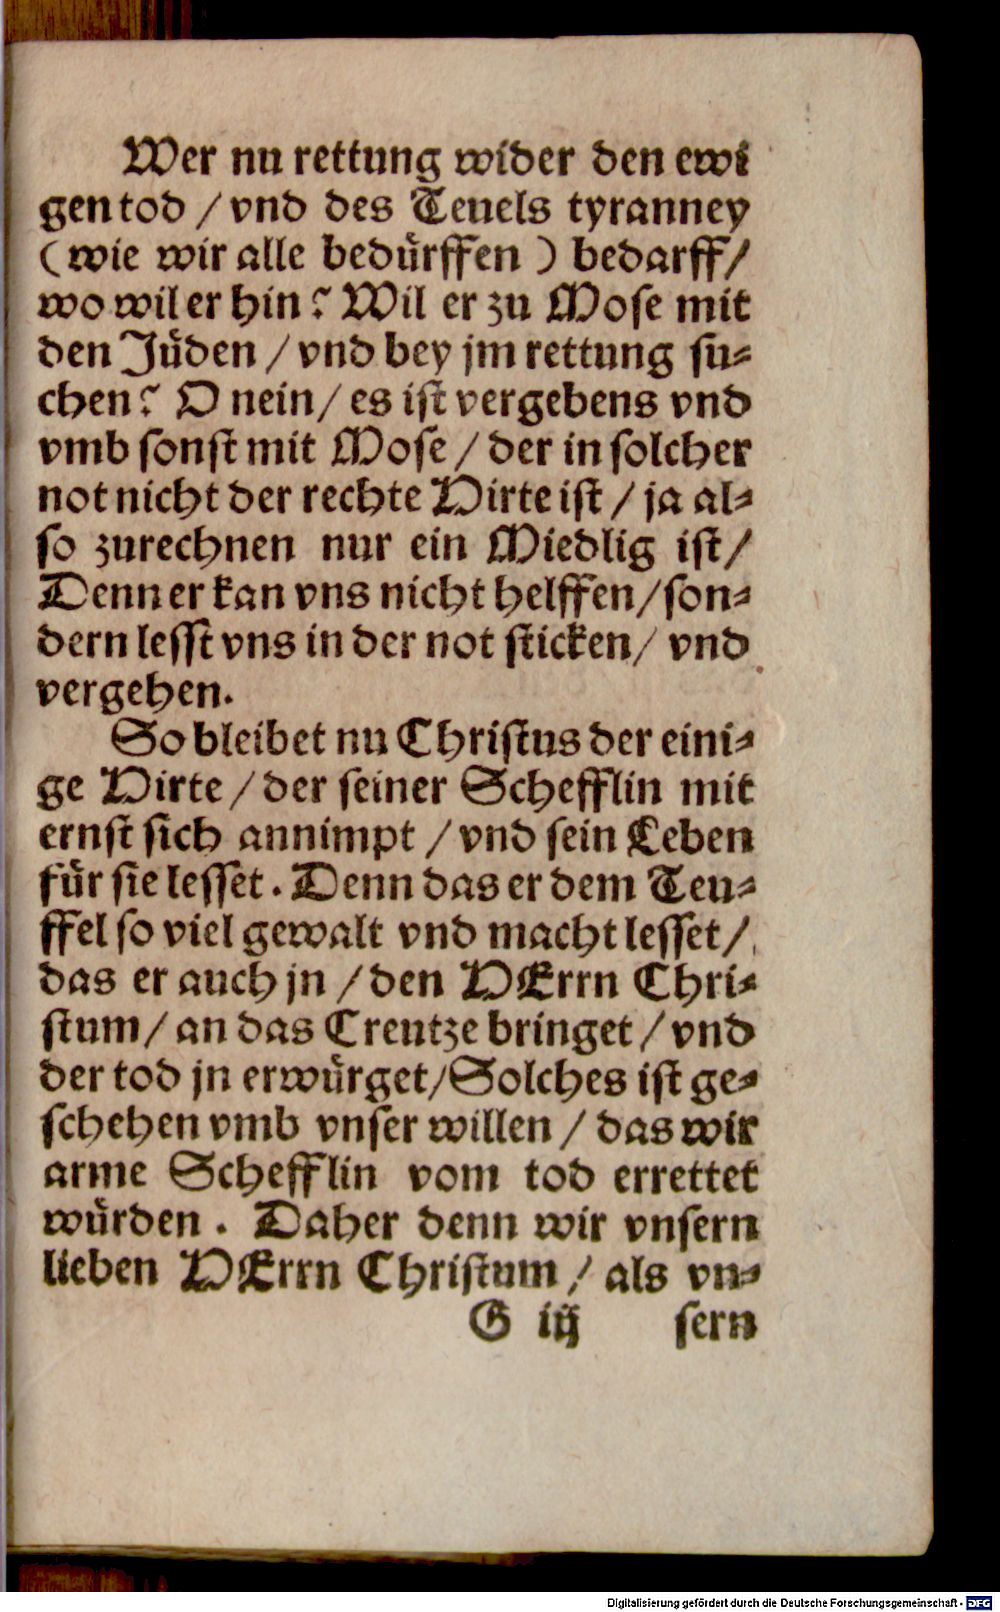 Wer nu rettung wider den ewi
gen tod / vnd des Teuels tyranney
(wie wir alle bedürffen) bedarff/
wo wil er hin? Wil er zu Mose mit
den Jüden / vnd bey jm rettung su-
chen? O nein/ es ist vergebens vnd
vmb sonst mit Mose / der in solcher
not nicht der rechte Hirte ist / ja al-
so zurechnen nur ein Miedlig ist/
Denn er kan vns nicht helffen/ son-
dern lesst vns in der not sticken/ vnd
vergehen.
So bleibet nu Christus der eini-
ge Hirte / der seiner Schefflin mit
ernst sich annimpt / vnd sein Leben
für sie lesset. Denn das er dem Teu-
ffel so viel gewalt vnd macht lesset/
das er auch jn / den HErrn Chri-
stum/ an das Creutze bringet / vnd
der tod jn erwürget/ Solches ist ge-
schehen vmb vnser willen / das wir
arme Schefflin vom tod errettet
würden. Daher denn wir vnsern
lieben HErrn Christum / als vn-
G iij sern
Digitalisierung gefördert durch die Deutsche Forschungsgemeinschaft - DFG